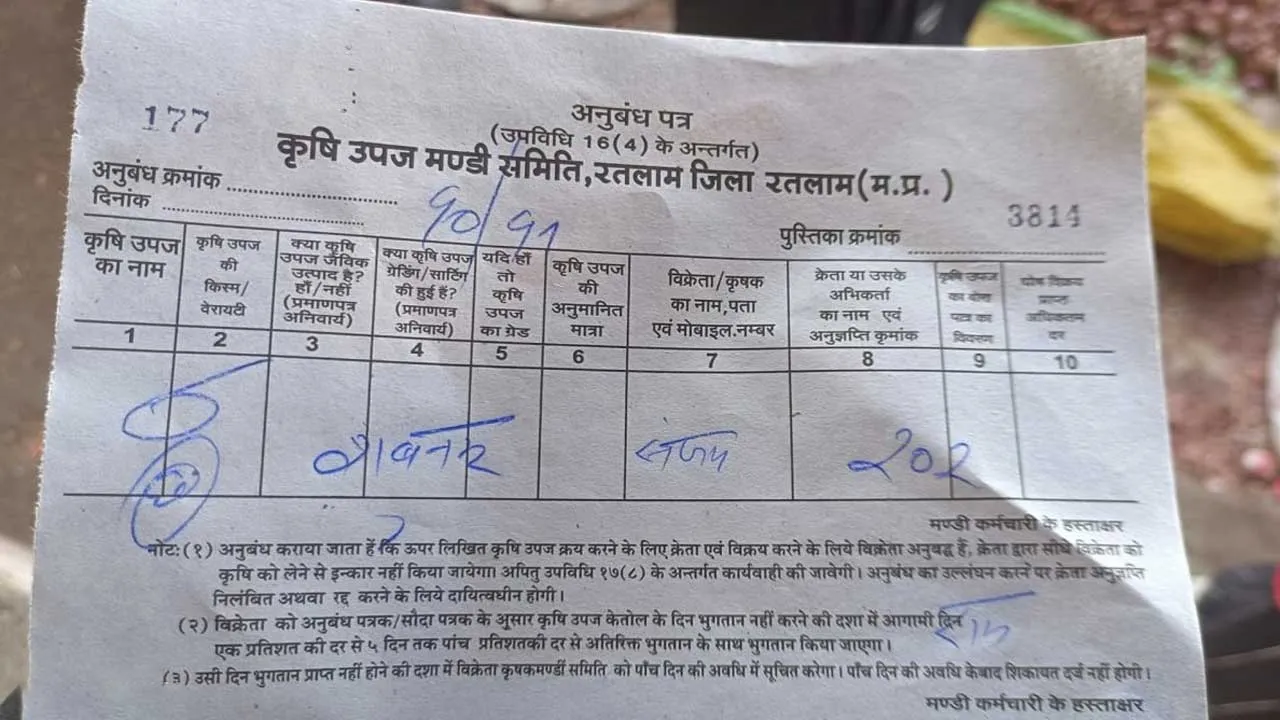 177
अनुबंध पत्र
(उपविधि 16(4) के अन्तर्गत)
कृषि उपज मण्डी समिति,रतलाम जिला रतलाम(म.प्र. )
अनुबंध क्रमांक ..............................
दिनांक ..............................
१०/११
3814
पुस्तिका क्रमांक ..............................
कृषि उपज का नाम
कृषि उपज की किस्म/ वेरायटी
क्या कृषि उपज जैविक उत्पाद है? हाँ/नहीं (प्रमाणपत्र अनिवार्य)
क्या कृषि उपज ग्रेडिंग/सार्टिंग की हुई है? (प्रमाणपत्र अनिवार्य)
यदि हाँ तो कृषि उपज का ग्रेड
कृषि उपज की अनुमानित मात्रा
विक्रेता/कृषक का नाम,पता एवं मोबाइल.नम्बर
क्रेता या उसके अभिकर्ता का नाम एवं अनुज्ञप्ति कृमांक
कृषि उपज का विवरण
प्राप्त अधिकतम दर
1 2 3 4 5 6 7 8 9 10
संजय २०२
मण्डी कर्मचारी के हस्ताक्षर
नोटः(१) अनुबंध कराया जाता हैं कि ऊपर लिखित कृषि उपज क्रय करने के लिए क्रेता एवं विक्रय करने के लिये विक्रेता अनुबद्ध हैं, क्रेता द्वारा सीधे विक्रेता को
कृषि को लेने से इन्कार नहीं किया जायेगा। अपितु उपविधि १७(८) के अन्तर्गत कार्यवाही की जावेगी। अनुबंध का उल्लंघन करने पर क्रेता अनुज्ञप्ति
निलंबित अथवा रद्द करने के लिये दायित्वधीन होगी।
(२) विक्रेता को अनुबंध पत्रक/सौदा पत्रक के अूसार कृषि उपज केतोल के दिन भुगतान नहीं करने की दशा में आगामी दिन
एक प्रतिशत की दर से ५ दिन तक पांच प्रतिशतकी दर से अतिरिक्त भुगतान के साथ भुगतान किया जाएगा।
(३) उसी दिन भुगतान प्राप्त नहीं होने की दशा में विक्रेता कृषकमणर्डी समिति को पाँच दिन की अवधि में सूचित करेगा। पाँच दिन की अवधि केबाद शिकायत दर्ज नहीं होगी।
मण्डी कर्मचारी के हस्ताक्षर